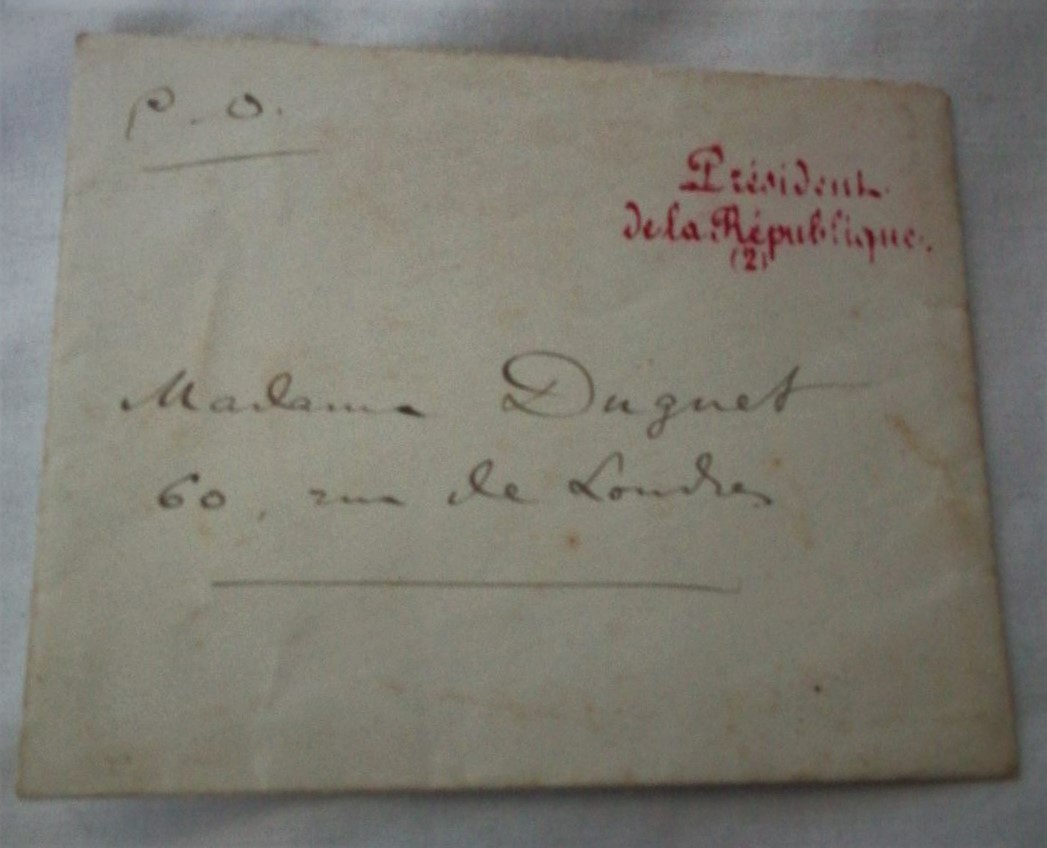 P. O.
Président
de la République.
(2)
Madame Duguet
60, rue de Londres